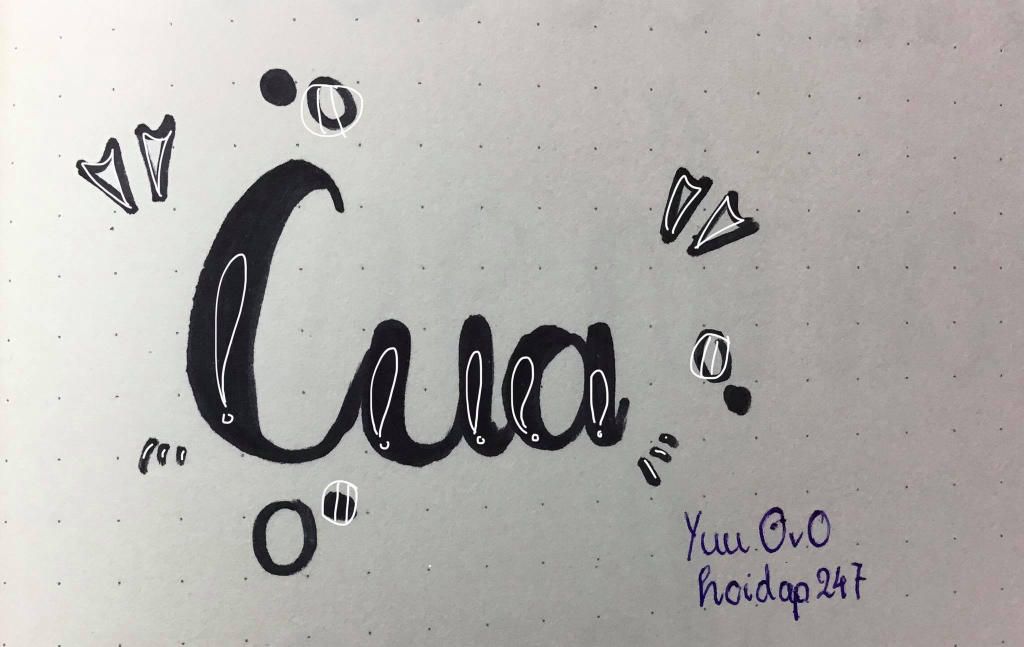 Cua
Yuu OvO
hoidap247